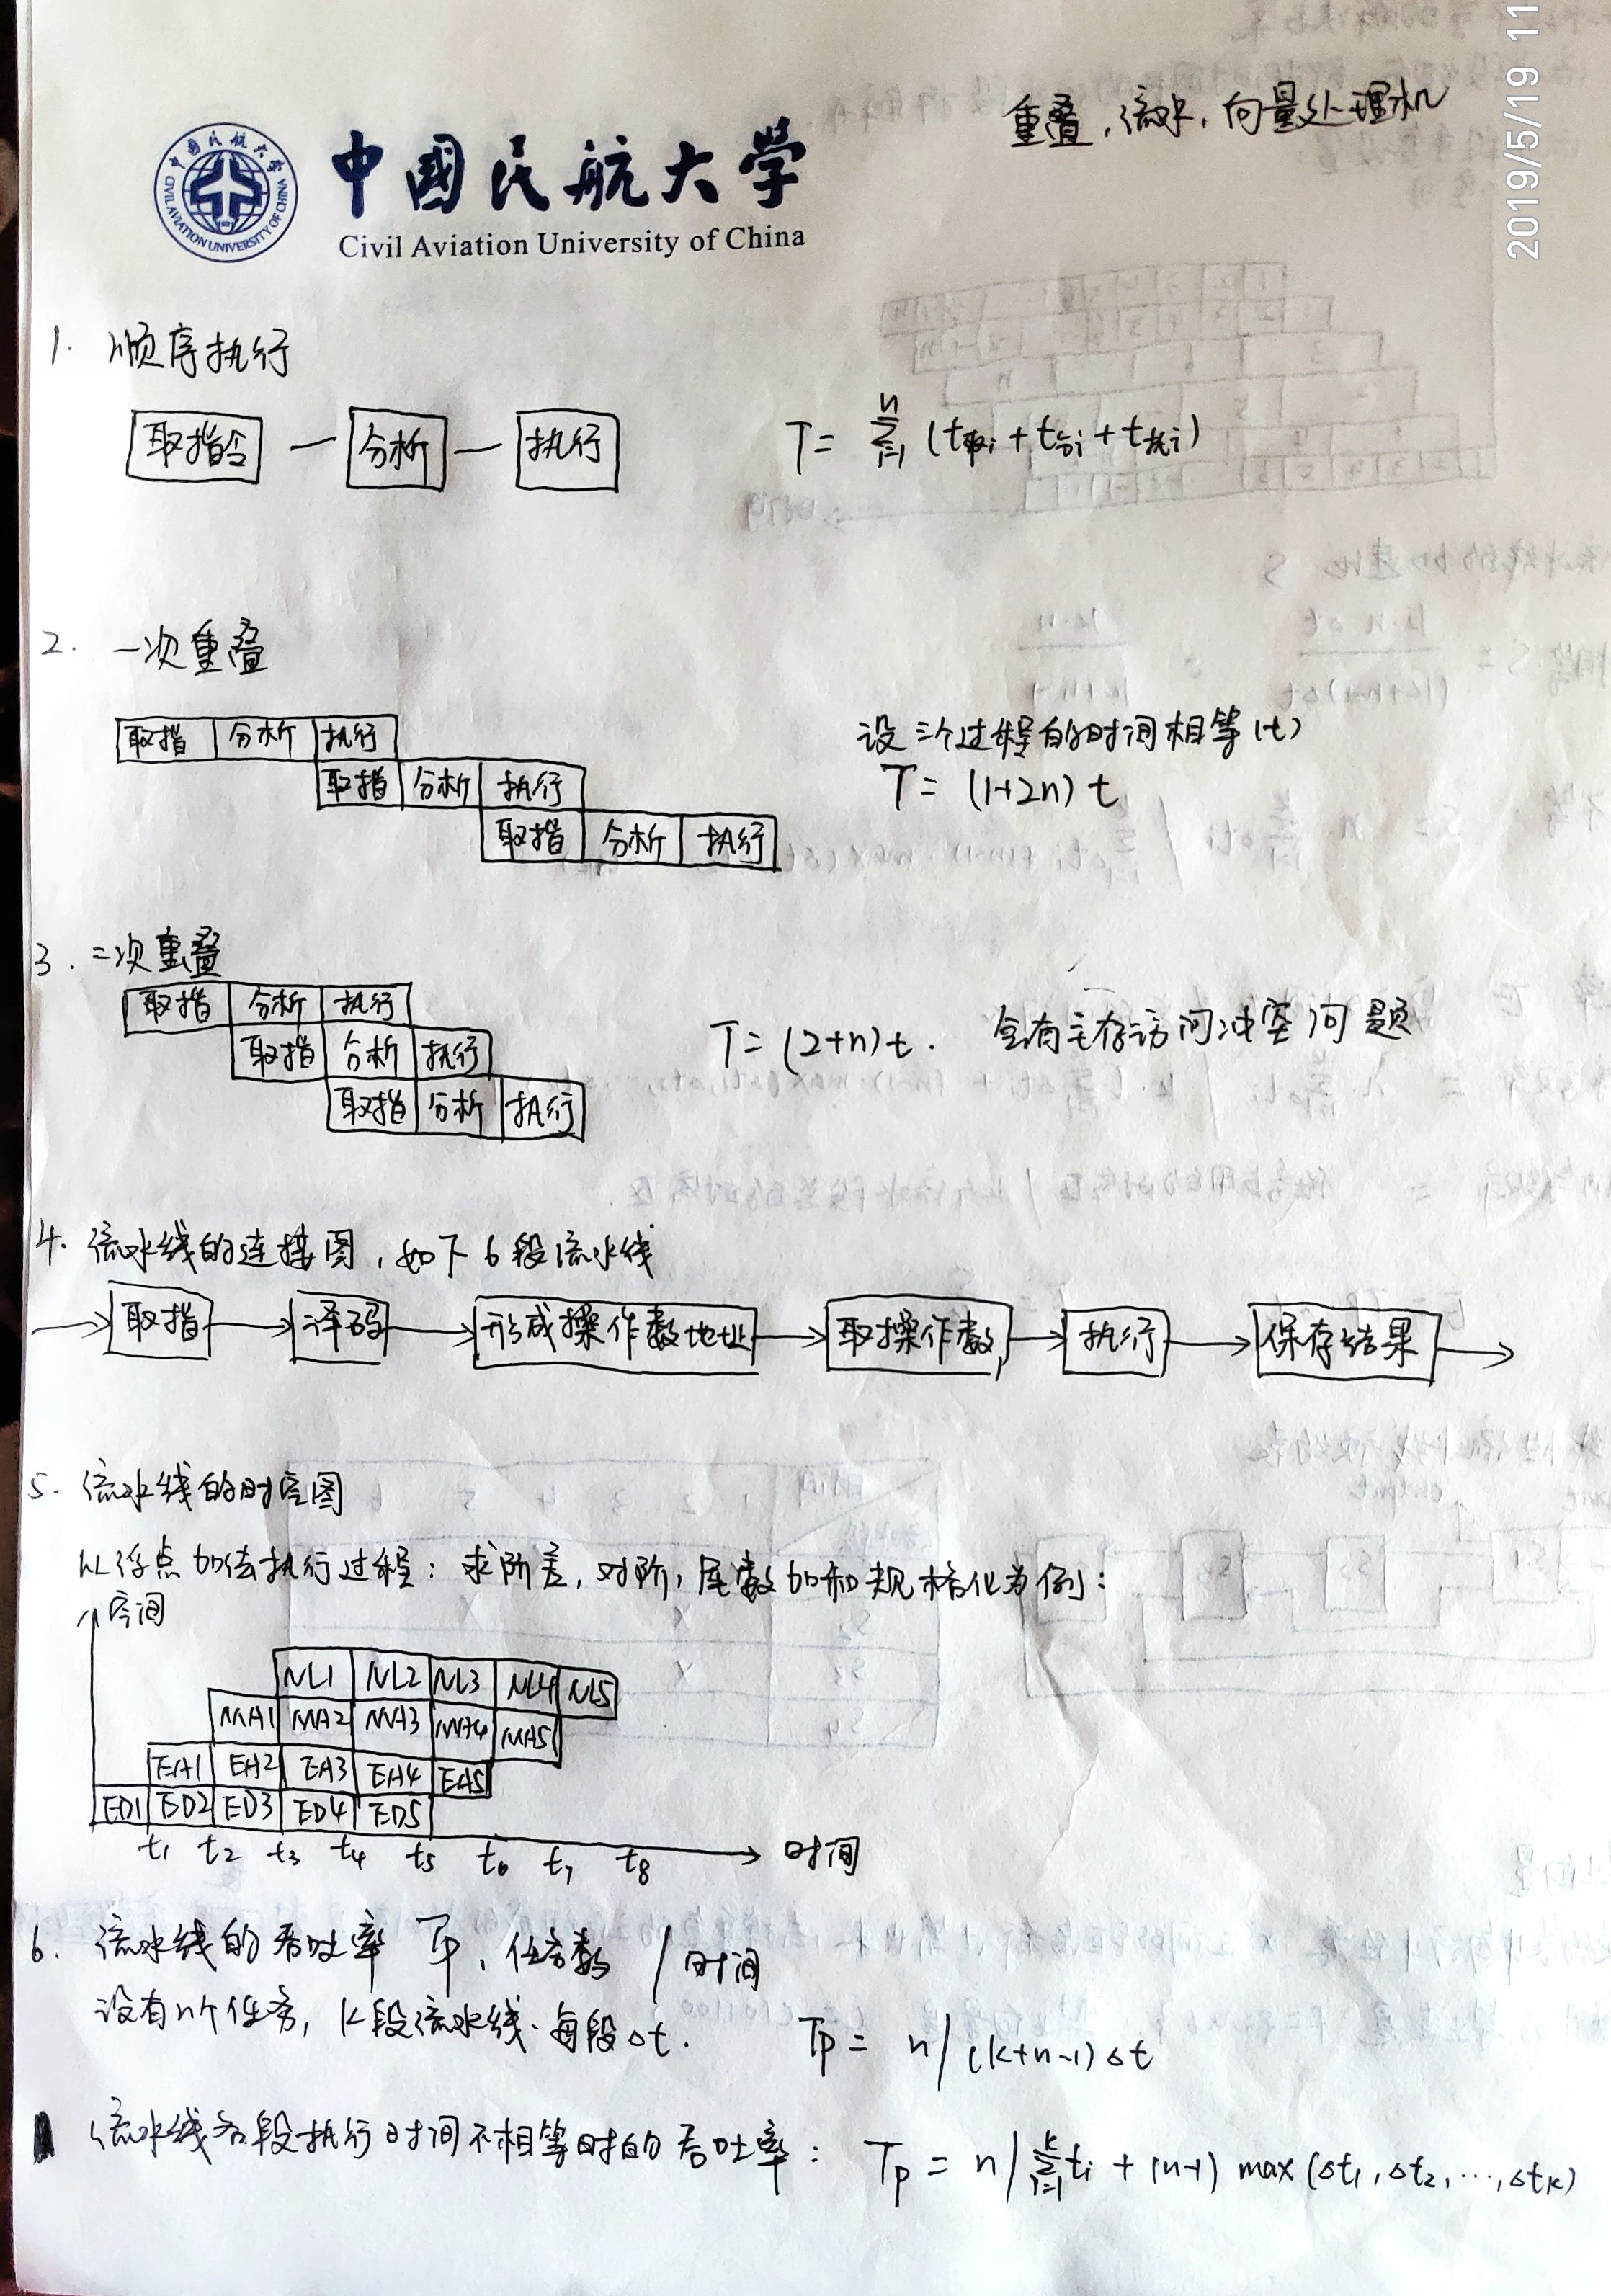 2019/5/19 11
重叠,流水,向量处理机
中國民航大学
CIVIL AVIATION UNIVERSITY OF CHINA
Civil Aviation University of China
1. 顺序执行
取指令 — 分析 — 执行
T = Σ(i=1..n) (t取i + t分i + t执i)
2. 一次重叠
取指 分析 执行
取指 分析 执行
取指 分析 执行
设三个过程的时间相等(t)
T = (1+2n) t
3. 二次重叠
取指 分析 执行
取指 分析 执行
取指 分析 执行
T = (2+n) t. 会有主存访问冲突问题
4. 流水线的连接图,如下6段流水线
→ 取指 → 译码 → 形成操作数地址 → 取操作数 → 执行 → 保存结果 →
5. 流水线的时空图
以浮点加法执行过程: 求阶差,对阶,尾数加和规格化为例:
空间
NL1 NL2 NL3 NL4 NL5
MA1 MA2 MA3 MA4 MA5
EA1 EA2 EA3 EA4 EA5
ED1 ED2 ED3 ED4 ED5
t1 t2 t3 t4 t5 t6 t7 t8 时间
6. 流水线的吞吐率 Tp, 任务数 / 时间
设有n个任务, k段流水线. 每段Δt. Tp = n/(k+n-1)Δt
流水线各段执行时间不相等时的吞吐率: Tp = n/Σ(i=1..k) ti + (n-1) max (Δt1, Δt2, ···, Δtk)